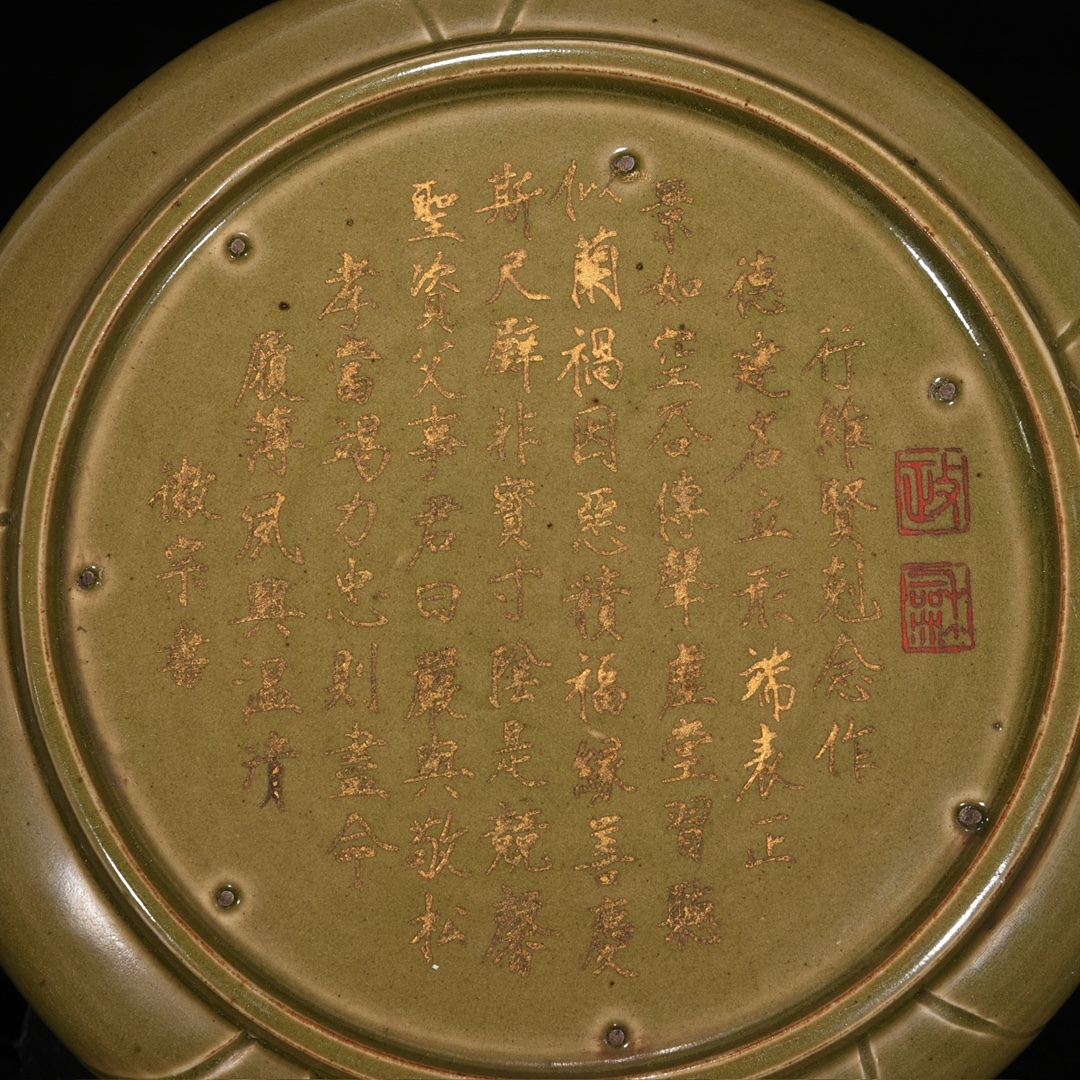 政
行維賢剋念作
德建名立形端表正
景如空谷傳聲虛堂習聽
似蘭禍因惡積福緣善慶
斯尺璧非寶寸陰是競馨
聖資父事君曰嚴與敬松
孝當竭力忠則盡命
履薄夙興溫凊
徽宗書